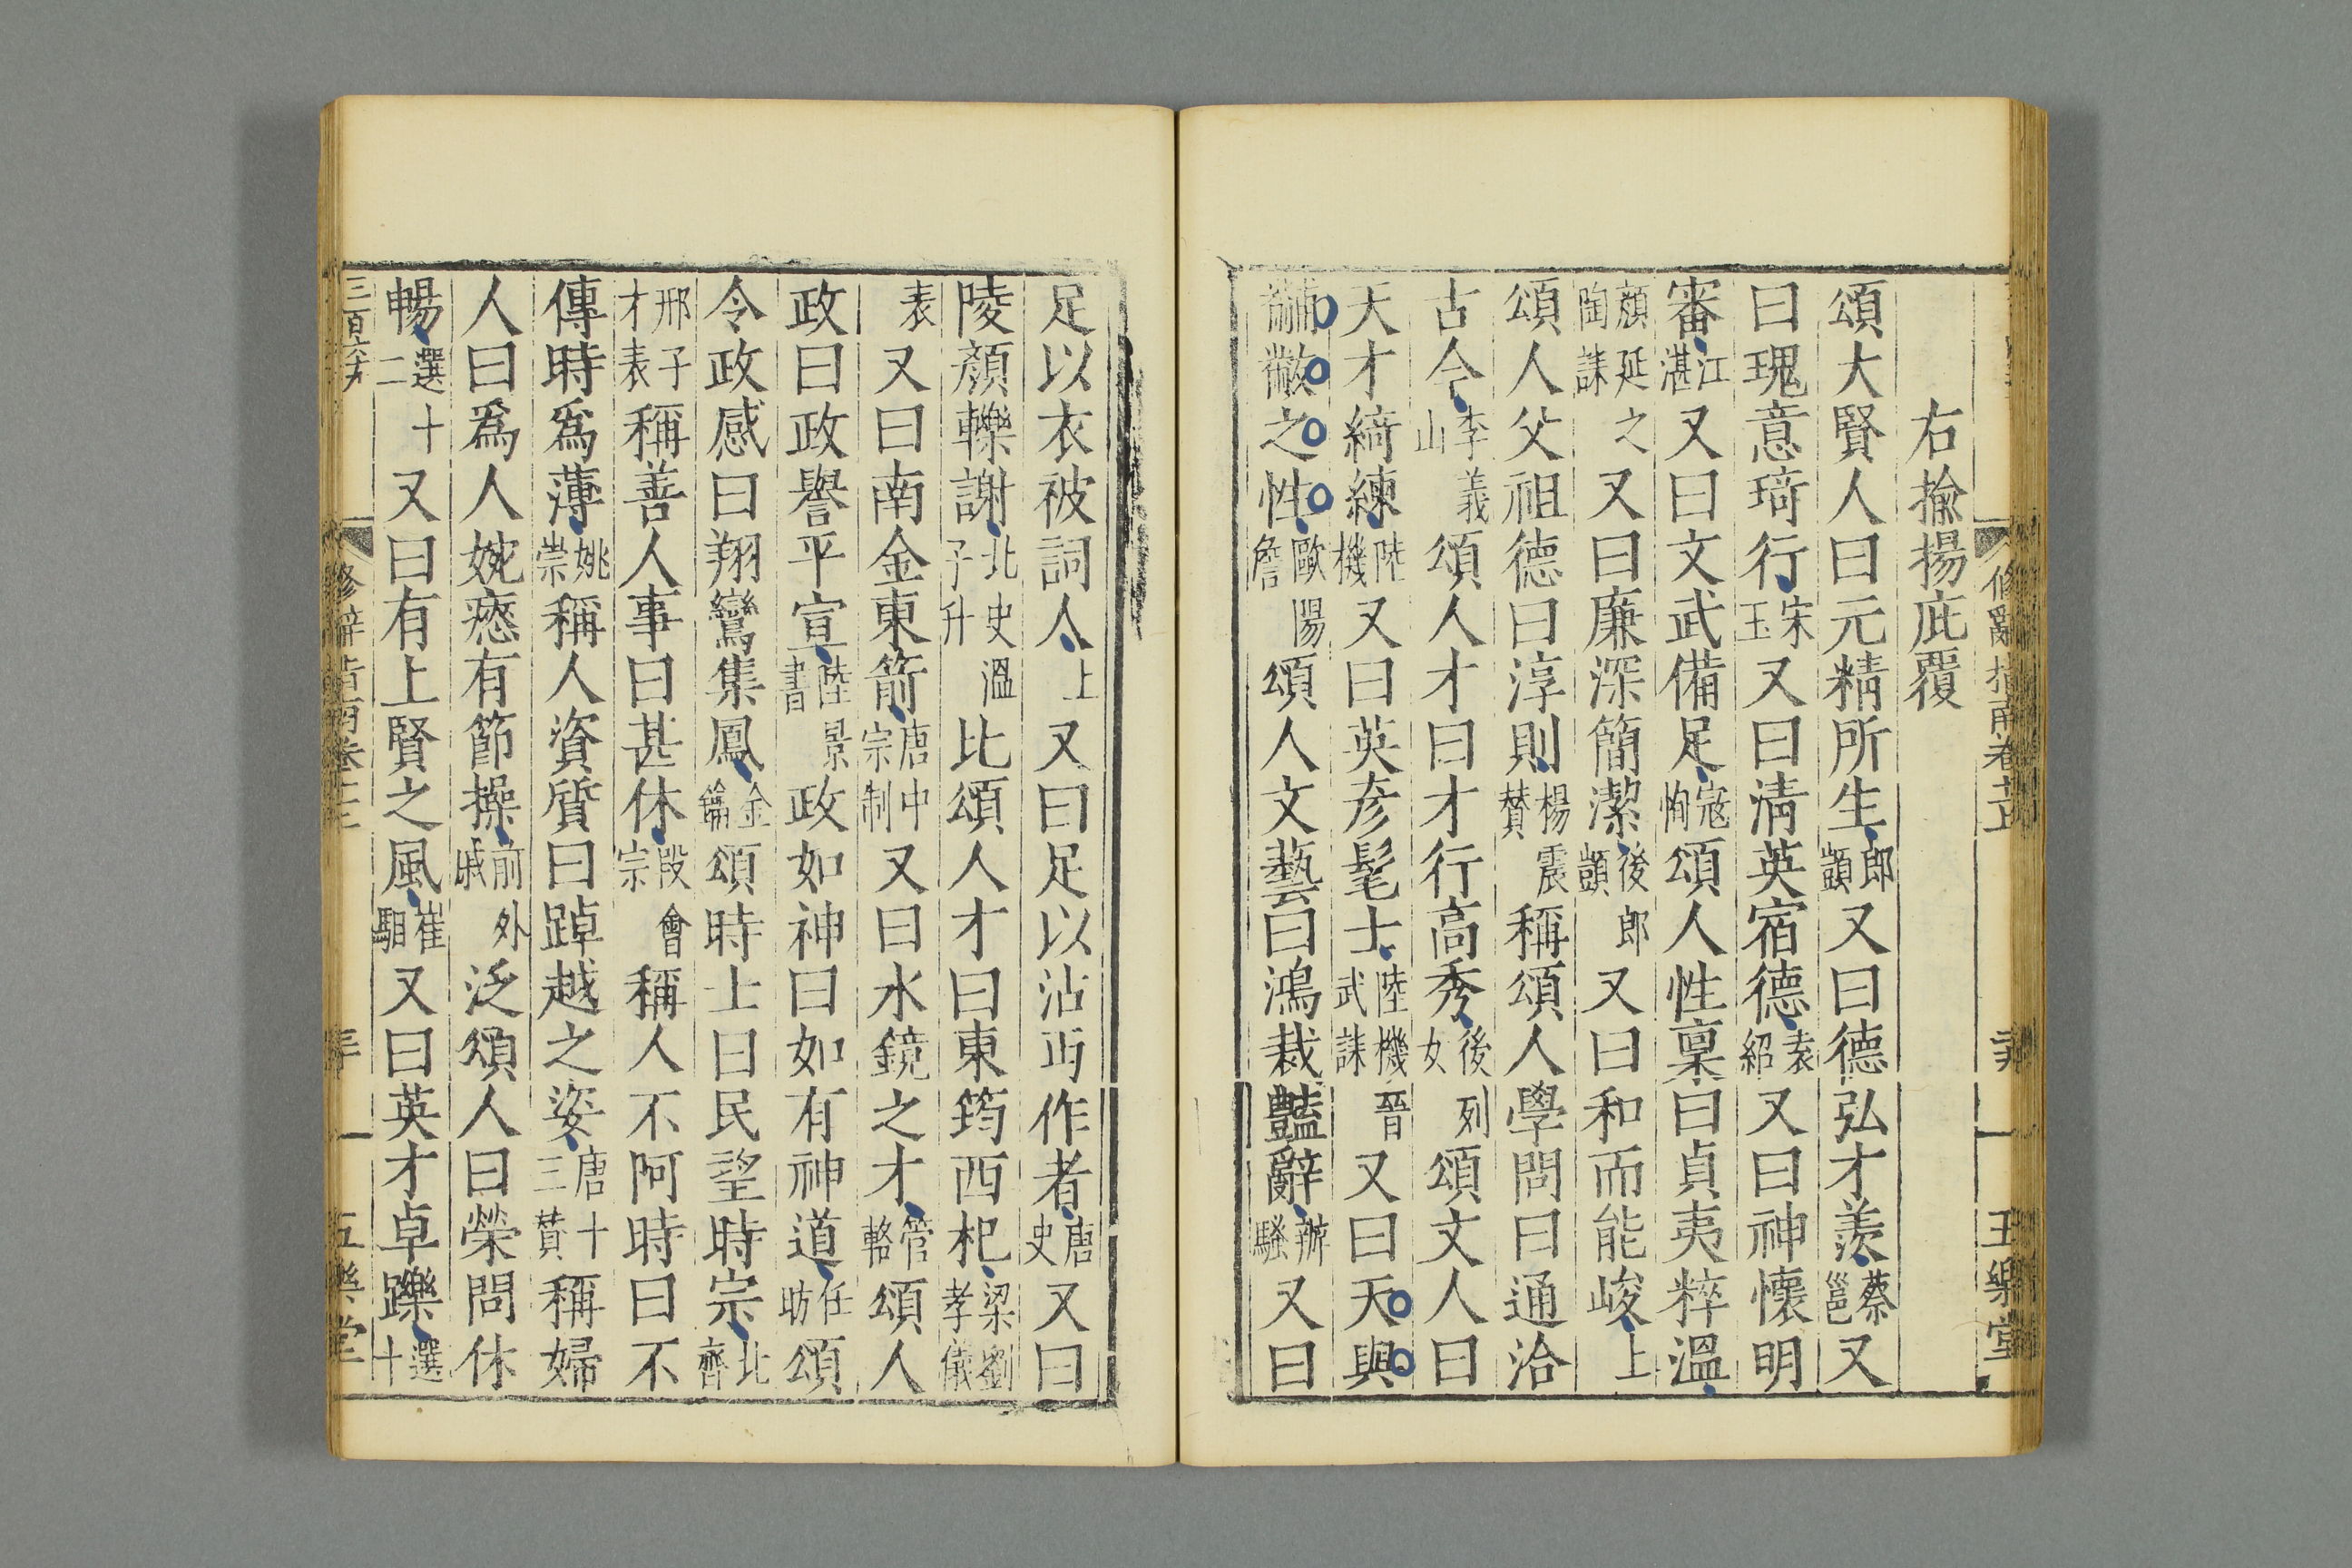 右揄揚庇覆
頌大賢人曰元精所生郎顗又曰德弘才羨蔡邕又
曰瑰意琦行宋玉又曰清英宿德袁紹又曰神懷明
審江湛又曰文武備足寇恂頌人性稟曰貞夷粹溫
顏延之陶誄又曰廉深簡潔後郎顗又曰和而能峻上
頌人父祖德曰淳則楊震贊稱頌人學問曰通洽
古今李義山頌人才曰才行高秀後列女頌文人曰
天才綺練陸機又曰英彥髦士陸機晉武誄又曰天與
黼黻之性歐陽詹頌人文藝曰鴻裁豔辭辨騷又曰
足以衣被詞人上又曰足以沾丐作者唐史又曰
陵顏轢謝北史溫子升比頌人才曰東筠西杞梁劉孝儀
表又曰南金東箭唐中宗制又曰水鏡之才管輅頌人
政曰政譽平宣陸景書政如神曰如有神道任昉頌
令政感曰翔鸞集鳳金鑰頌時上曰民望時宗北齊
邢子才表稱善人事曰甚休段會宗稱人不阿時曰不
傳時爲薄姚崇稱人資質曰踔越之姿唐十三贊稱婦
人曰爲人婉瘱有節操前外戚泛頌人曰榮問休
暢選十二又曰有上賢之風崔駰又曰英才卓躒選十
修辭指南卷十三
五樂堂